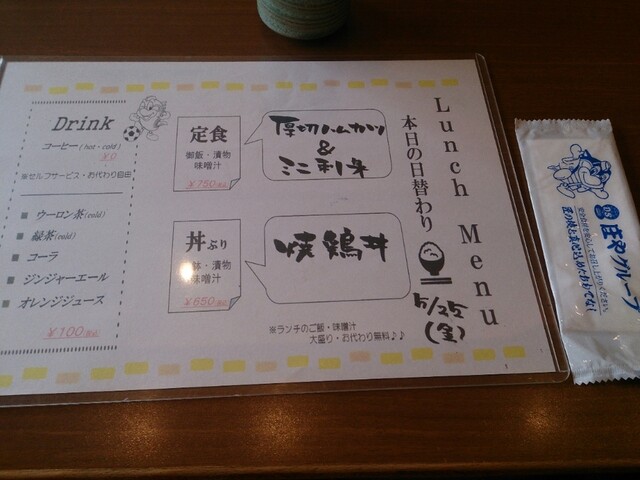 Lunch Menu
本日の日替わり
5/25
(金)
定食
御飯・漬物
味噌汁
￥750
厚切ハムカツ
&
ミニ刺身
丼ぶり
漬物
味噌汁
￥650
焼鶏丼
※ランチのご飯・味噌汁
大盛り・お代わり無料♪♪
Drink
コーヒー(hot・cold)
￥0
※セルフサービス・お代わり自由
■ ウーロン茶(cold)
■ 緑茶(cold)
■ コーラ
■ ジンジャーエール
■ オレンジジュース
￥100
ぼやグループ